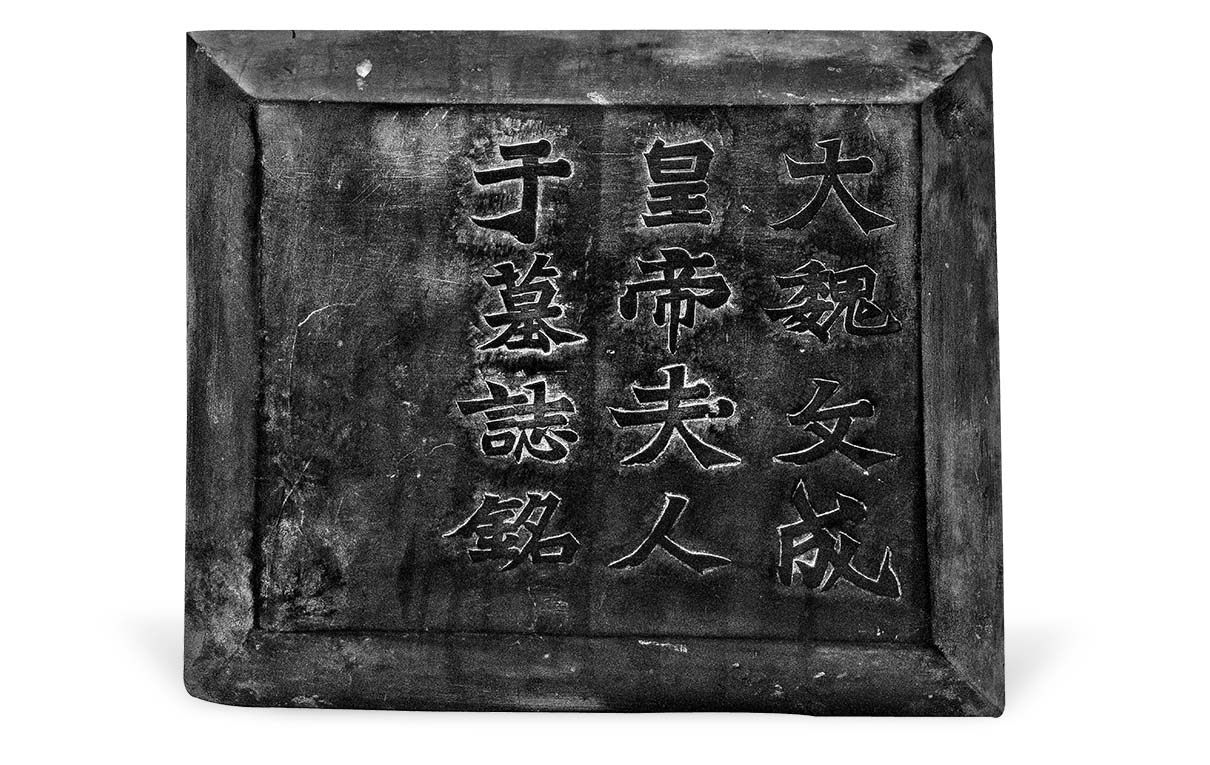 大魏文成
皇帝夫人
于墓誌銘